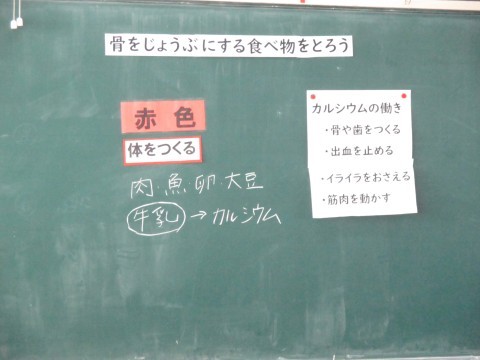 骨をじょうぶにする食べ物をとろう
赤色
体をつくる
肉・魚・卵・大豆
牛乳→カルシウム
カルシウムの働き
・骨や歯をつくる
・出血を止める
・イライラをおさえる
・筋肉を動かす